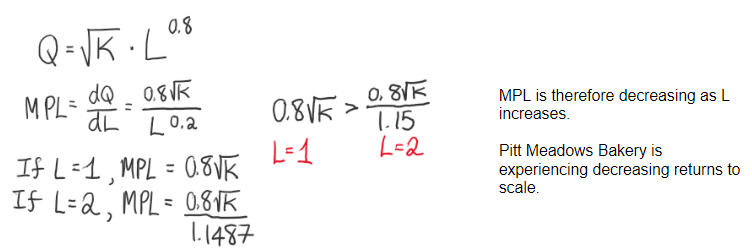 Q = √K · L^0.8
MPL = dQ/dL = 0.8√K / L^0.2
If L=1, MPL = 0.8√K
If L=2, MPL = 0.8√K / 1.1487
0.8√K > 0.8√K / 1.15
L=1 L=2
MPL is therefore decreasing as L
increases.
Pitt Meadows Bakery is
experiencing decreasing returns to
scale.